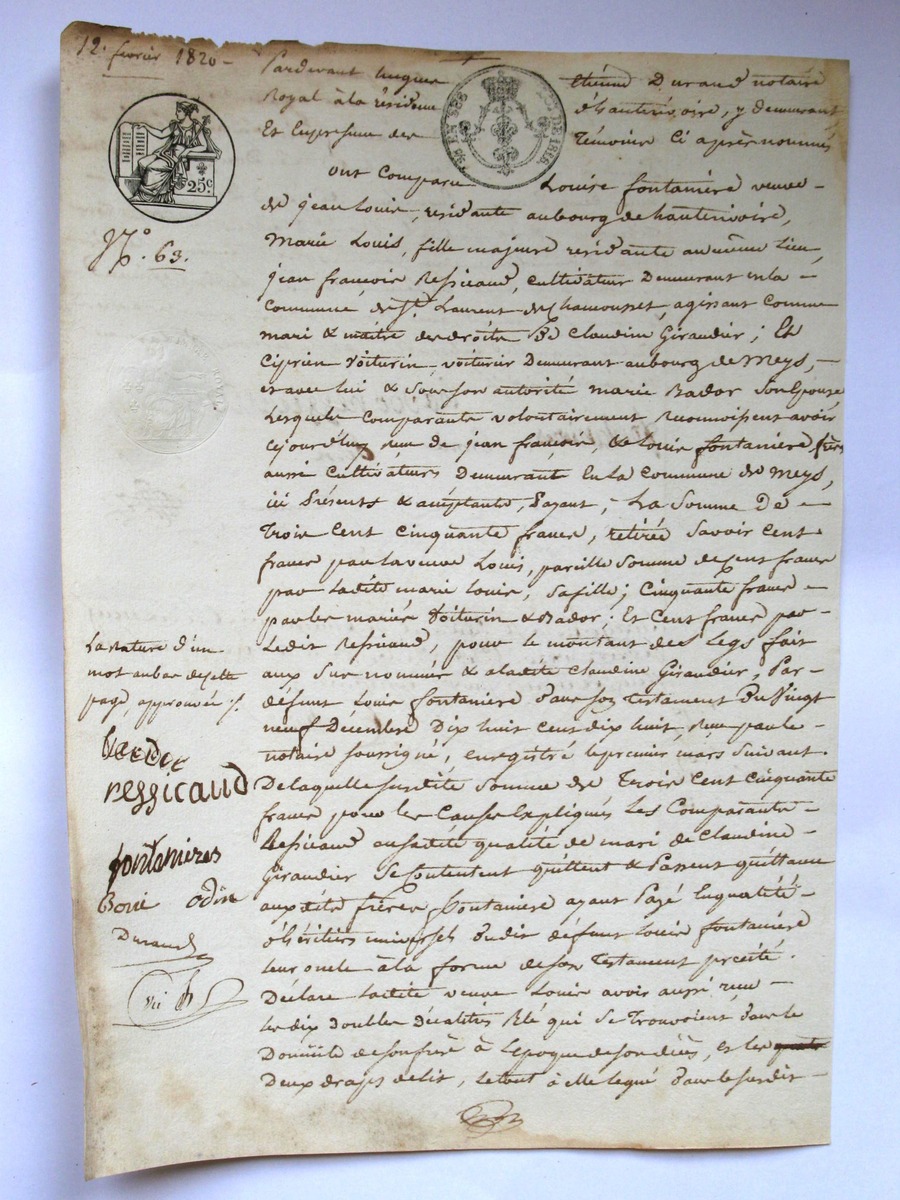 12. fevrier 1820 -
Pardevant hugue Etienne Durand notaire
Royal à la résidence d'hauterivoire, y demeurant
Et En présence des Témoins Ci après nommés
25c.
ont Comparu Louise fontaniere veuve
de jean Louis, résidante au bourg de hauterivoire,
N.º 63.
Marie Louis, fille majeure residante au même Lieu,
jean françois Ressicaud, cultivateur Demeurant en la -
Commune de St. Laurent de Chamousset, agissant Comme
mari & maitre des droits De Claudine Giraudier ; Et
Ciprien Voiturin, voiturier Demeurant au bourg de Meys, -
et avec lui & sous son autorité marie Bador Son Epouse
Lesquels Comparants volontairement Reconnoissent avoir
Cejourd'huy reçu de jean françois, & Louis fontaniere, frères
aussi Cultivateurs Demeurant En La Commune de Meys,
ici Présents & acceptants, Payant ; La Somme De -
Trois Cent Cinquante francs, retirée Savoir Cent
francs par la veuve Louis, pareille Somme de Cent francs
par Ladite marie Louis, Sa fille ; Cinquante francs -
par les mariés Voiturin & Bador ; Et Cent francs par
Ledit Ressicaud, pour le montant des Legs fait
aux Sus nommés & a ladite Claudine Giraudier, Par -
défunt Louis fontaniere Dans son Testament Du Vingt
neuf Décembre Dix huit cent dix huit, Reçu par le -
notaire Soussigné, enregistré le premier mars Suivant.
De laquelle Susdite Somme de Trois Cent Cinquante
francs pour les Causes Expliqués Les Comparants -
Ressicaud en sadite qualité de mari de Claudine -
Giraudier Se Contentent quittent & Passent quittance
auxdits frères fontaniere ayant Payé En qualité
d'héritiers universels dudit défunt Louis fontaniere
leur oncle à la forme de son Testament précité.
Déclare Ladite veuve Louis avoir aussi reçu -
Les dix doubles Décalitres Blé qui Se Trouvoient Dans le
Domicile de Son frère à l'époque de Son décès, et les
Deux draps de lit, Le tout à Elle légué Dans le Susdit -
La Rature d'un
mot au bas de cette
page, approuvée
ressicaud
fontanieres
odin
Durand